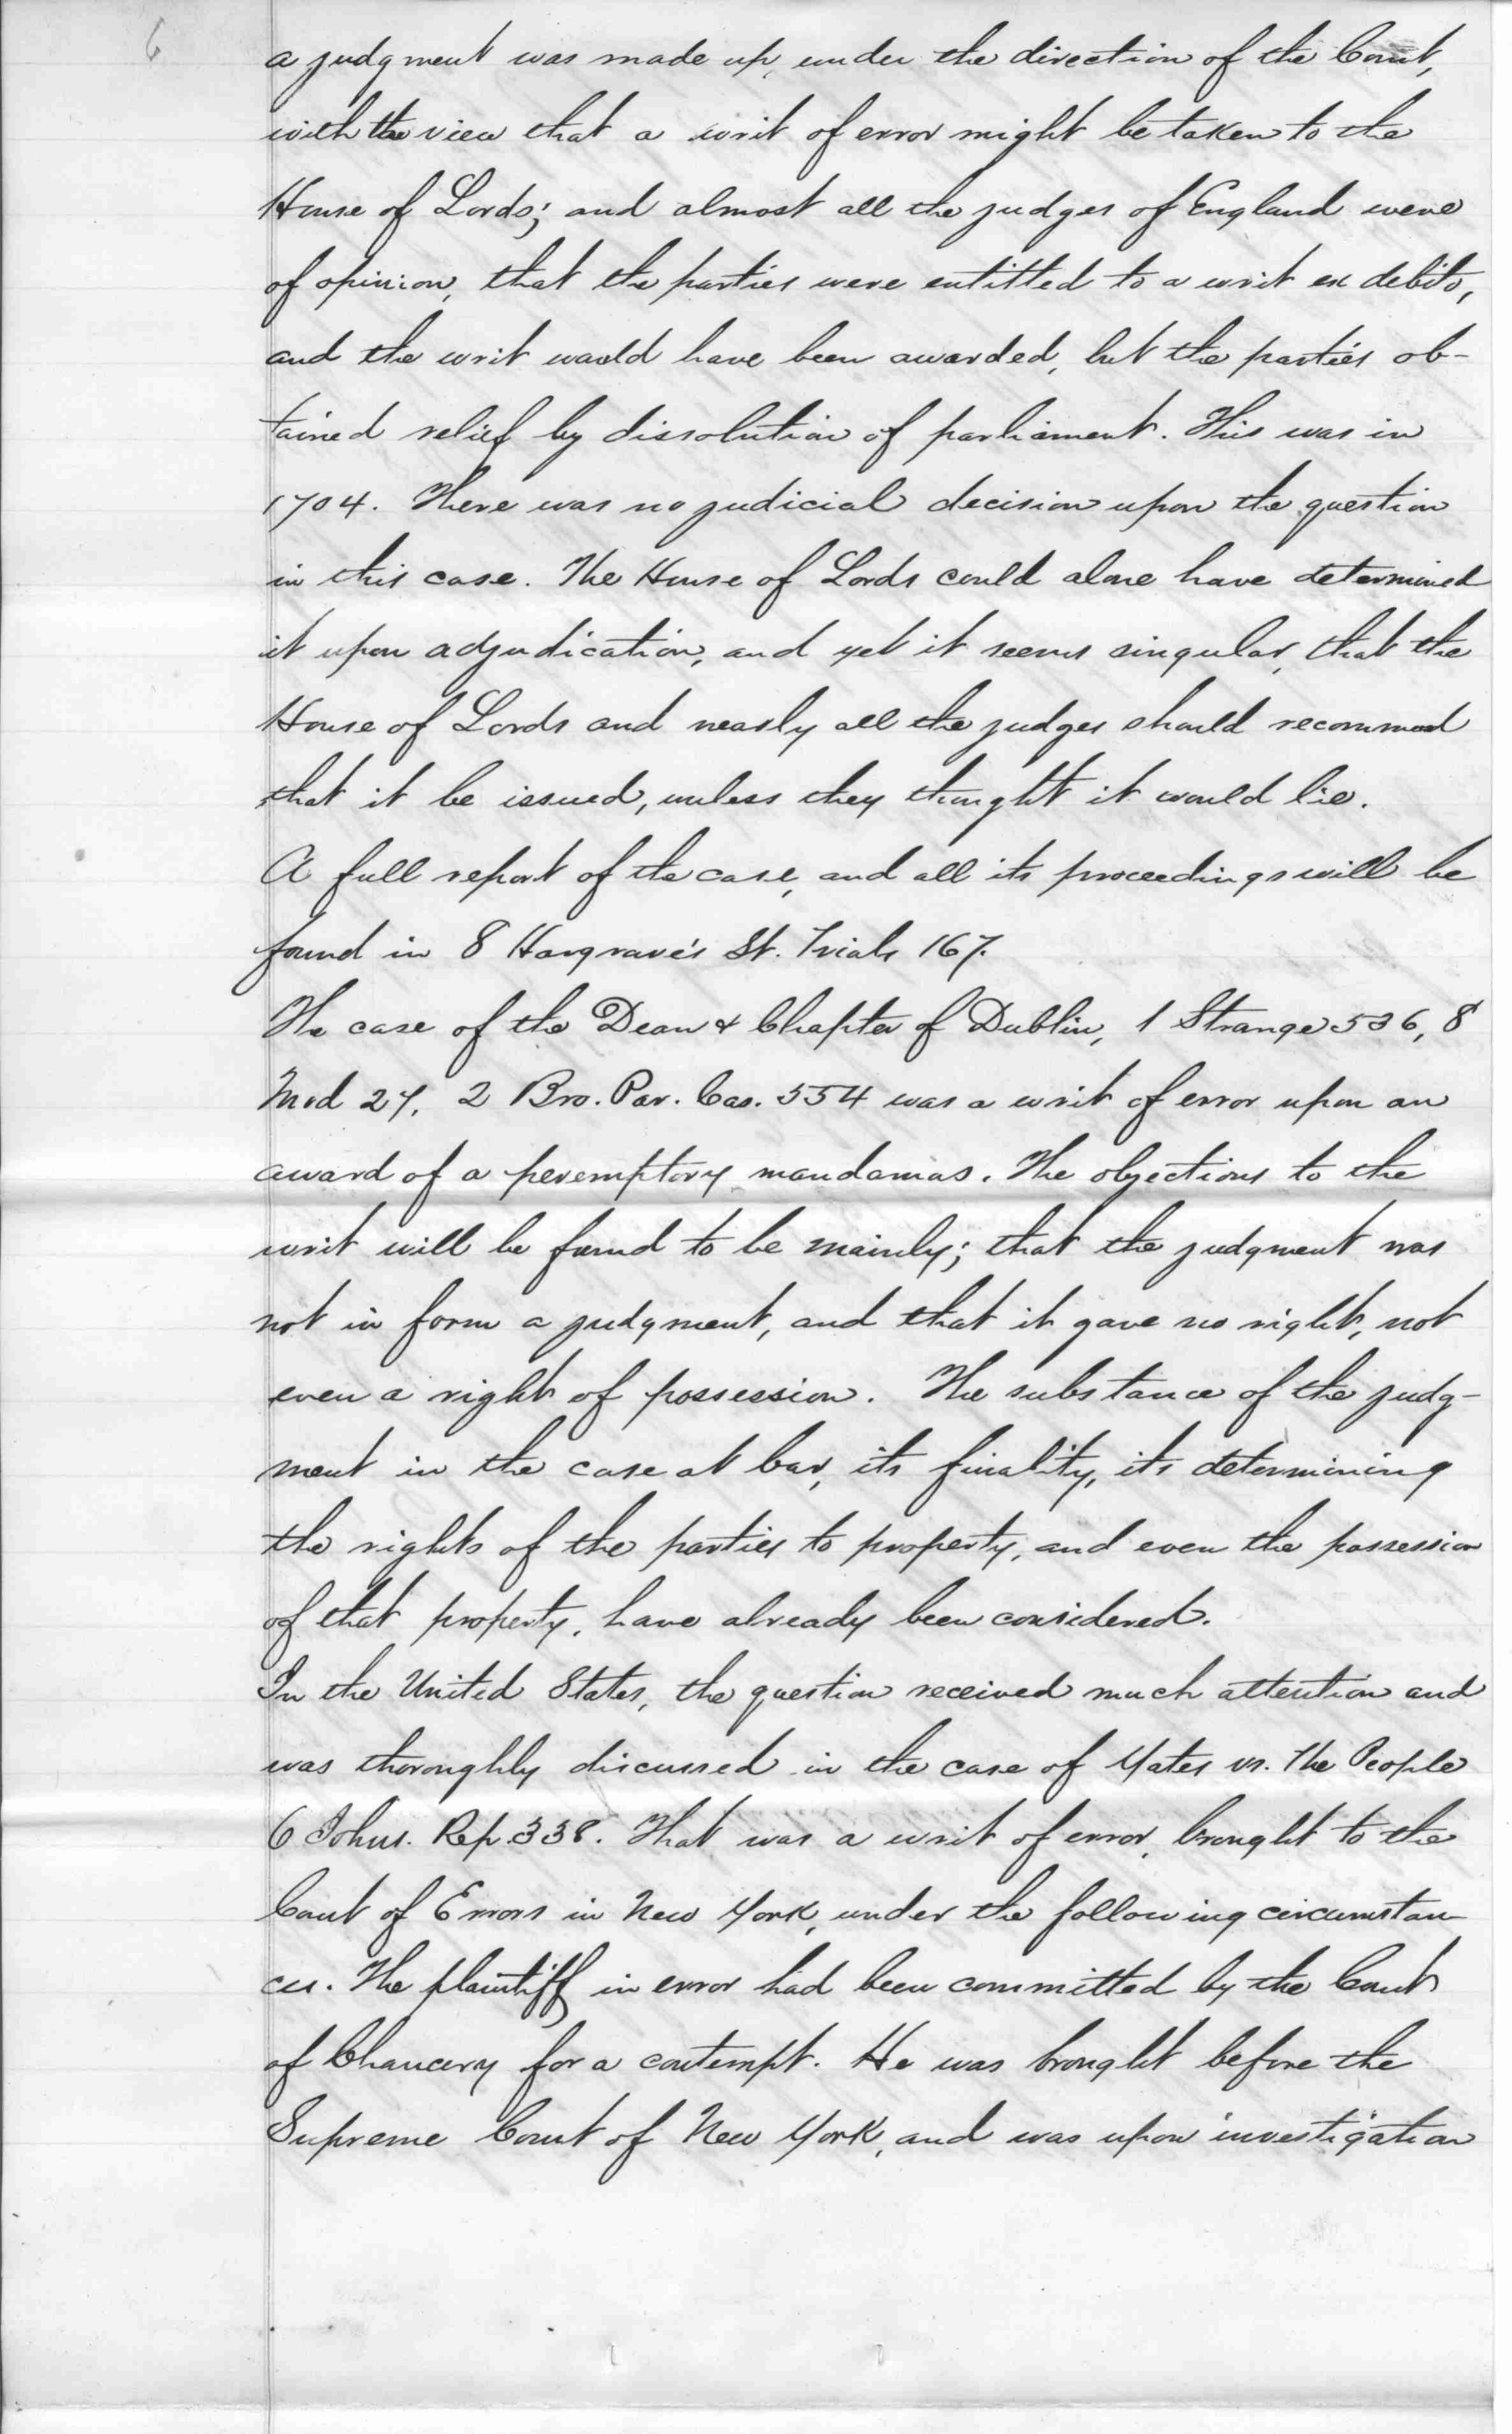 6
a judgment was made up, under the direction of the Court,
with the view that a writ of error might be taken to the
House of Lords; and almost all the judges of England were
of opinion, that the parties were entitled to a writ ex debito,
and the writ would have been awarded, but the parties ob-
tained relief by dissolution of parliament. This was in
1704. There was no judicial decision upon the question
in this case. The House of Lords could alone have determined
it upon adjudication, and yet it seems singular, that the
House of Lords and nearly all the judges should recommend
that it be issued, unless they thought it would lie.
A full report of the case, and all its proceedings will be
found in 8 Hargrave's St. Trials 167.
The case of the Dean & Chapter of Dublin, 1 Strange 536, 8
Mod 27, 2 Bro. Par. Cas. 554 was a writ of error upon an
award of a peremptory mandamas. The objections to the
writ will be found to be mainly; that the judgment was
not in form a judgment, and that it gave no right, not
even a right of possession. The substance of the judg-
ment in the case at bar, its finality, its determining
the rights of the parties to property, and even the possession
of that property, have already been considered.
In the United States, the question received much attention and
was thoroghly discussed in the case of Yates vs. The People
6 Johns. Rep. 338. That was a writ of error, brought to the
Court of Errors in New York, under the following circumstan-
ces. The plaintiff in error had been committed by the Court
of Chancery for a contempt. He was brought before the
Supreme Court of New York, and was upon investigation